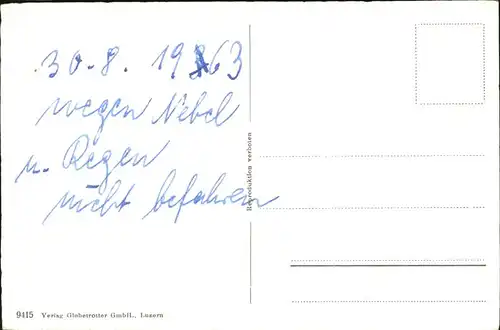 30.-8. 1963
wegen Nebel
u. Regen
nicht befahren
Reproduktion verboten
9415 Verlag Globetrotter GmbH., Luzern